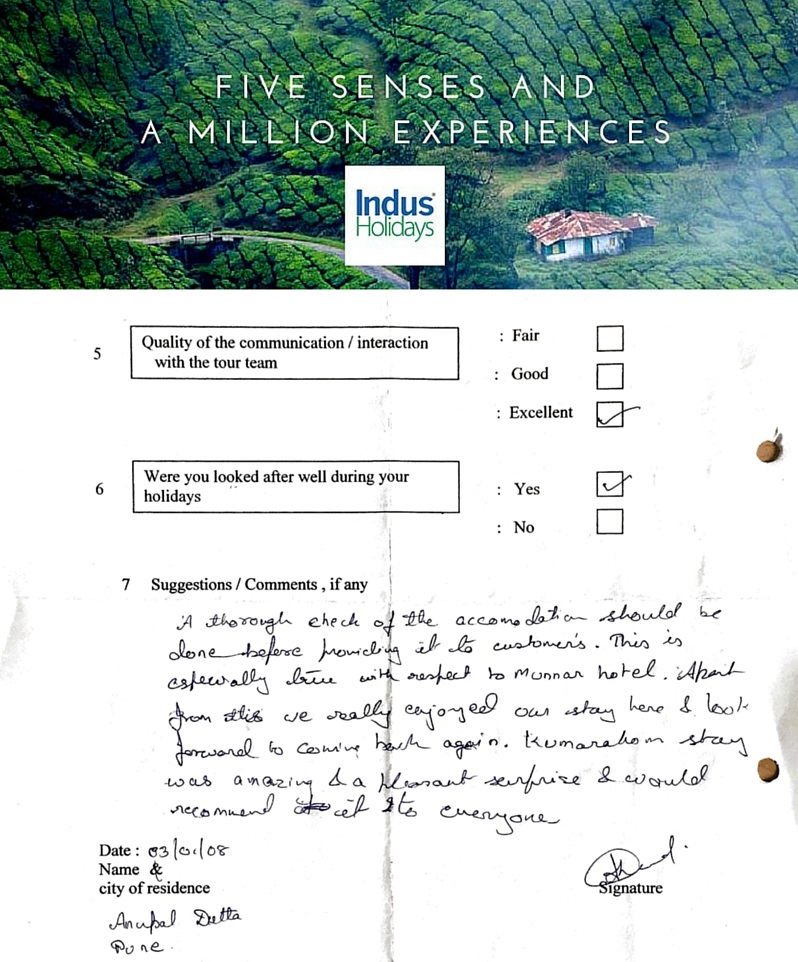 FIVE SENSES AND
A MILLION EXPERIENCES
Indus
Holidays
5 Quality of the communication / interaction
with the tour team
: Fair
: Good
: Excellent
6 Were you looked after well during your
holidays
: Yes
: No
7 Suggestions / Comments , if any
A thorough check of the accomodation should be
done before providing it to customer's. This is
especially true with respect to Munnar hotel. Apart
from this we really enjoyed our stay here & look
forward to coming back again. Kumarakom stay
was amazing & a pleasant surprise & would
recommend it to everyone
Date : 03/01/08
Name &
city of residence
Signature
Anupal Dutta
Pune.